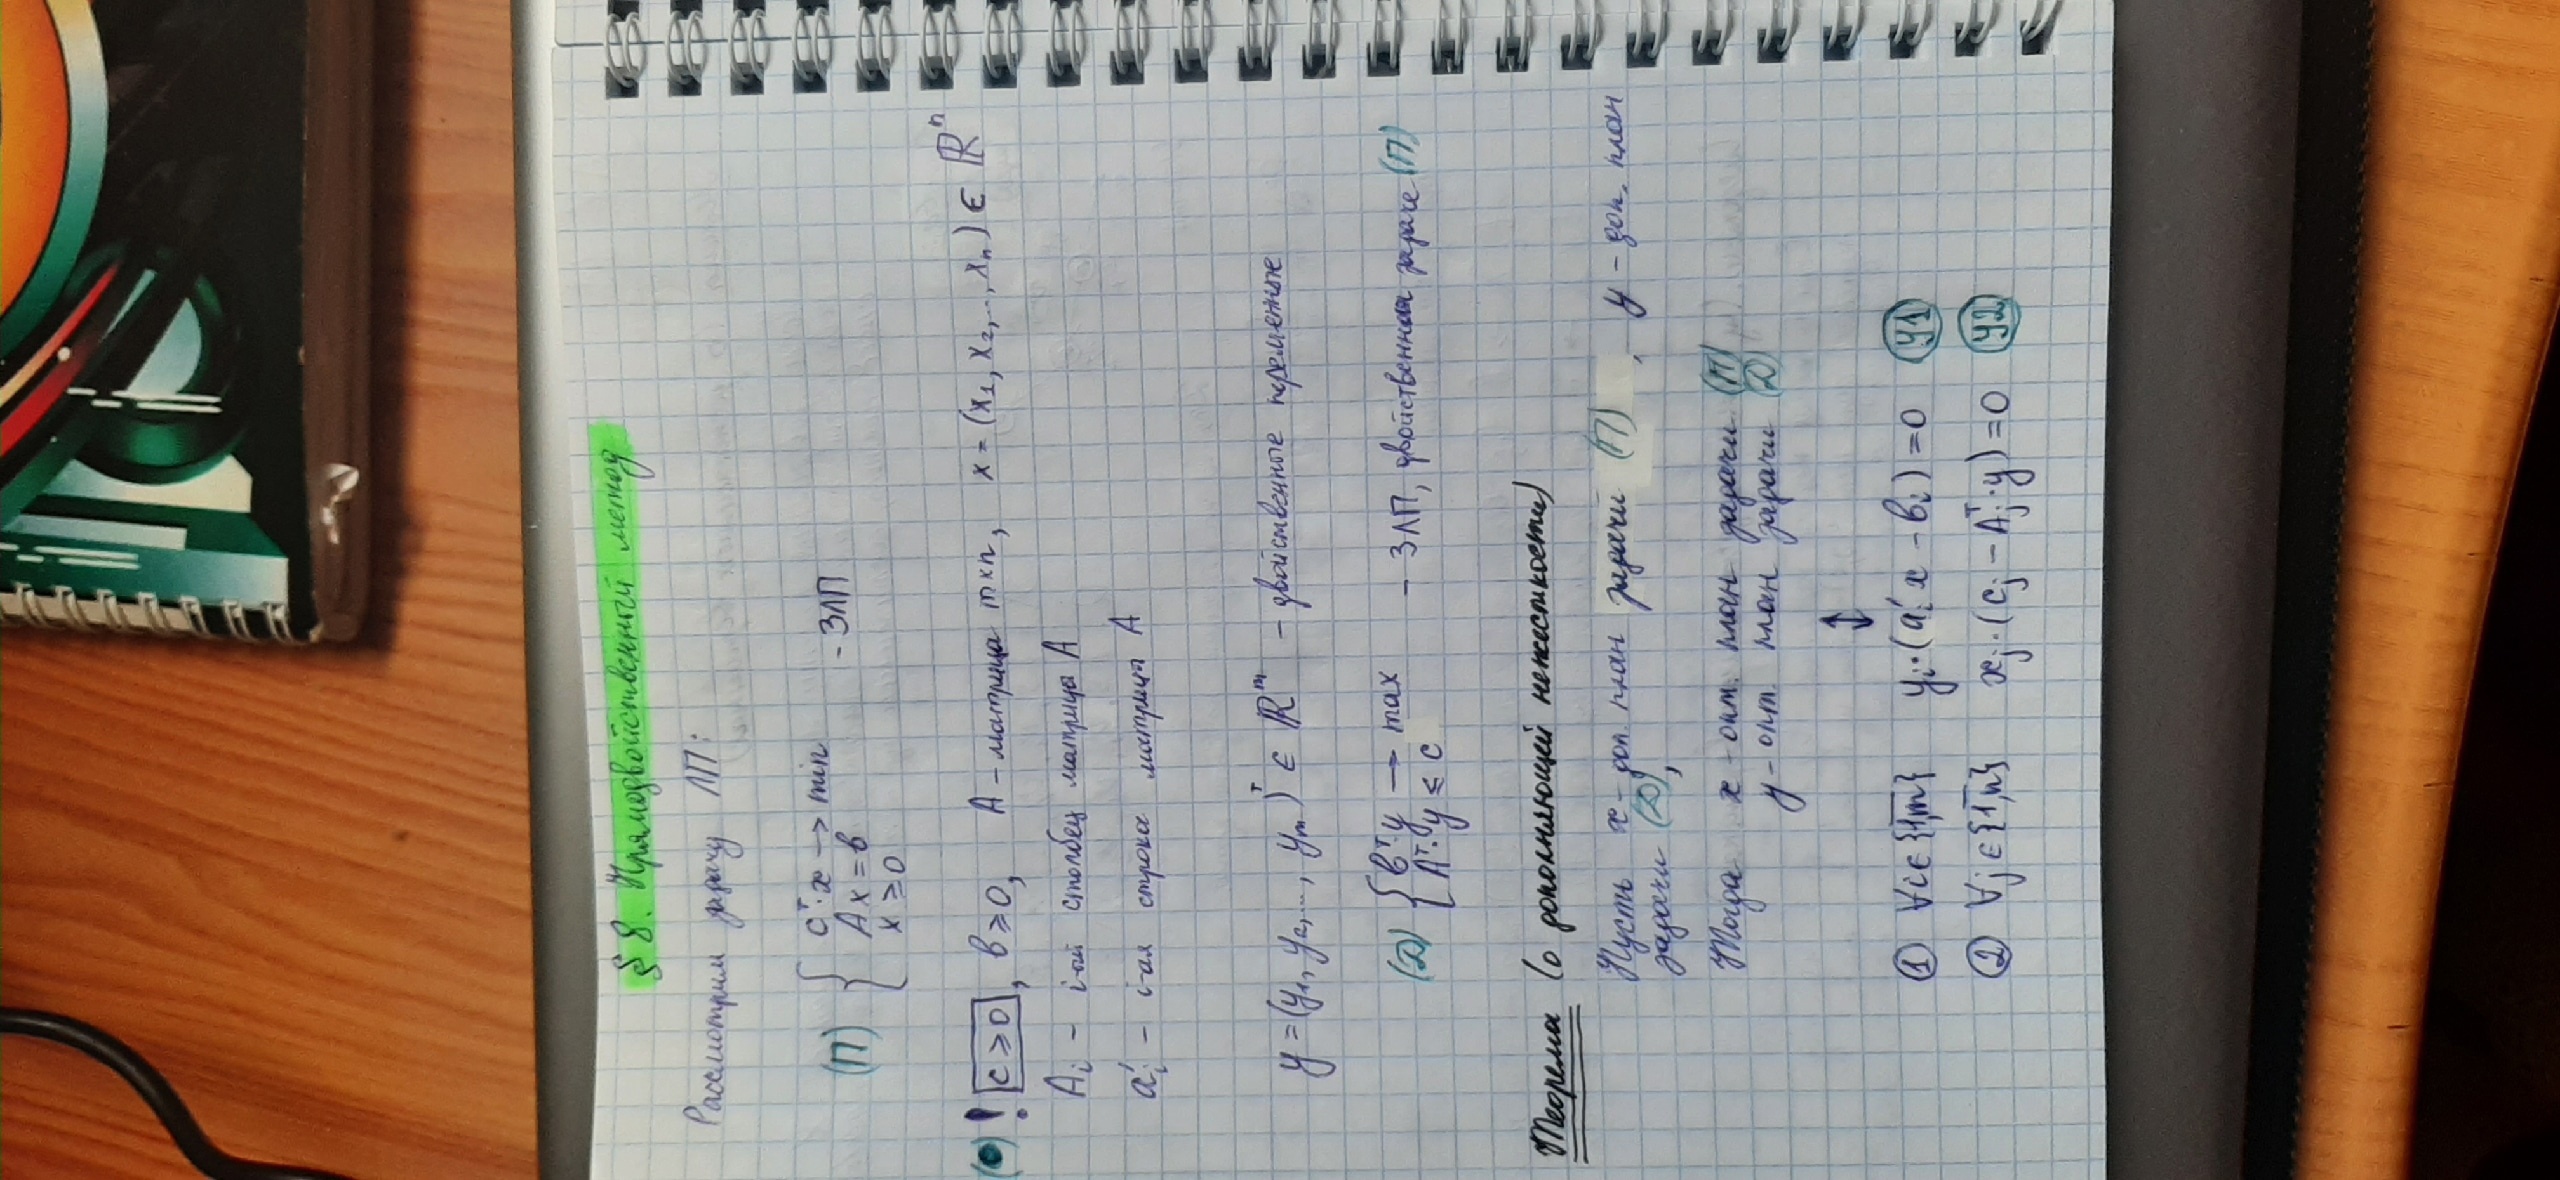 § 8. Прямодвойственный метод
Рассмотрим задачу ЛП:
(П) { cᵀ·x → min
Ax = b
x ≥ 0
- ЗЛП
(•) ! c ≥ 0, b ≥ 0, A – матрица m×n, x = (x₁, x₂,.., xₙ) ∈ ℝⁿ
Aᵢ – i-ый столбец матрицы A
a'ᵢ – i-ая строка матрицы A
y = (y₁, y₂,..., yₘ)ᵀ ∈ ℝᵐ – двойственные переменные
(Д) { bᵀ·y → max
Aᵀ·y ≤ c
- ЗЛП, двойственная задаче (П)
Теорема (о дополняющей нежесткости)
Пусть x – доп. план задачи (П), y – доп. план
задачи (Д),
Тогда x – опт. план задачи (П)
y – опт. план задачи (Д)
↕
① ∀i ∈ {1,m} yᵢ·(a'ᵢ x – bᵢ) = 0 (У1)
② ∀j ∈ {1,n} xⱼ·(cⱼ – Aⱼᵀ·y) = 0 (У2)